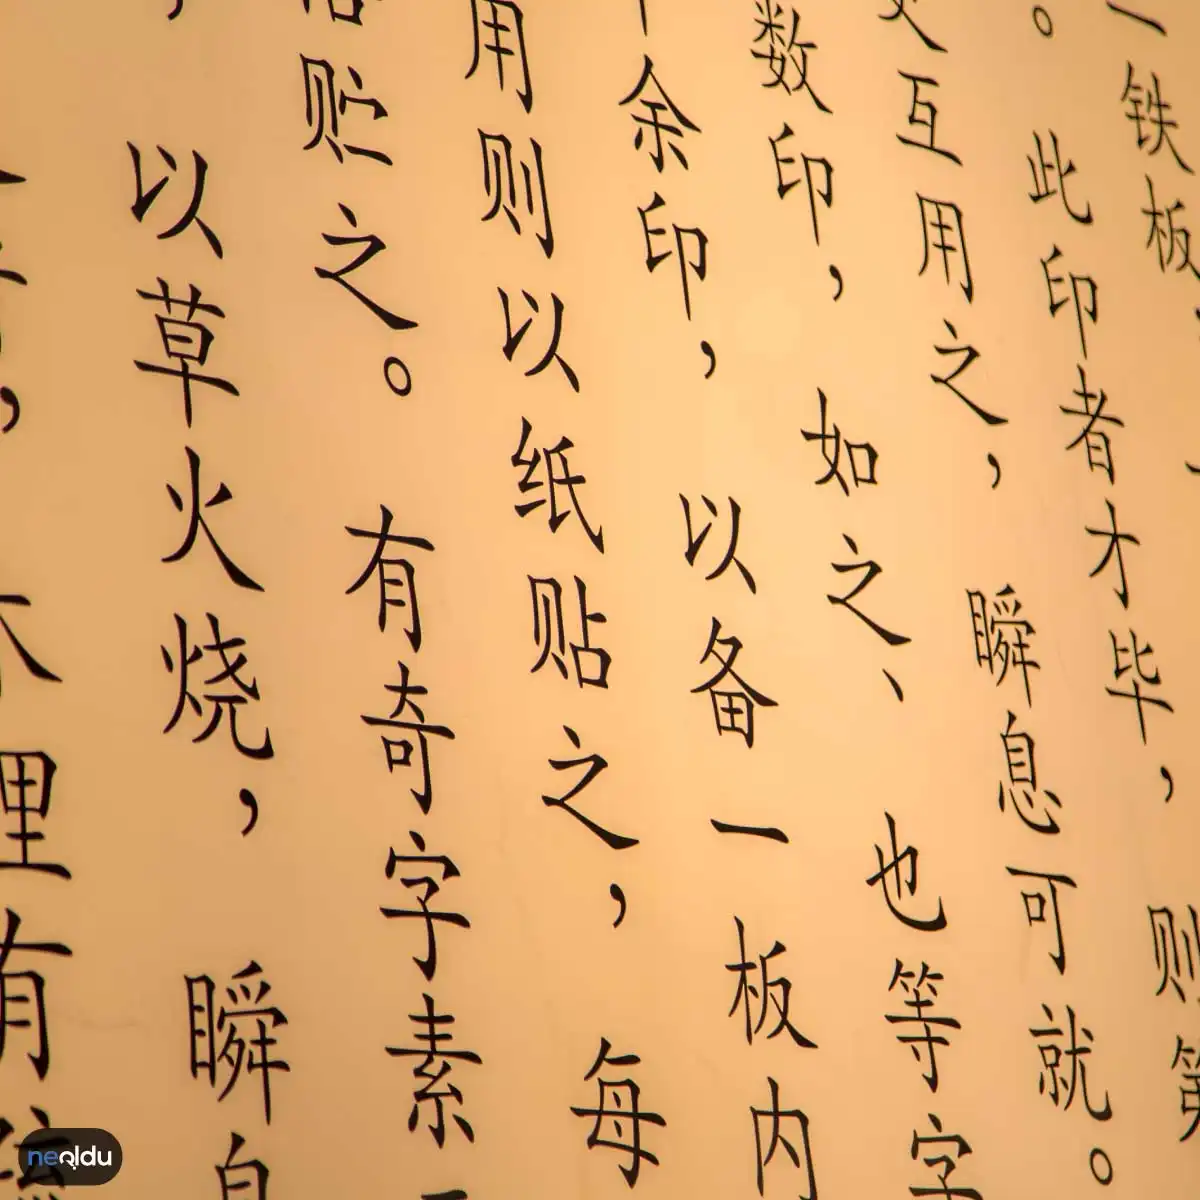 一铁板
。此印者才毕，则第
互用之，瞬息可就。
数印，如之、也等字
余印，以备一板内
用则以纸贴之，每
贮之。有奇字素
，以草火烧，瞬
，理有
neoldu